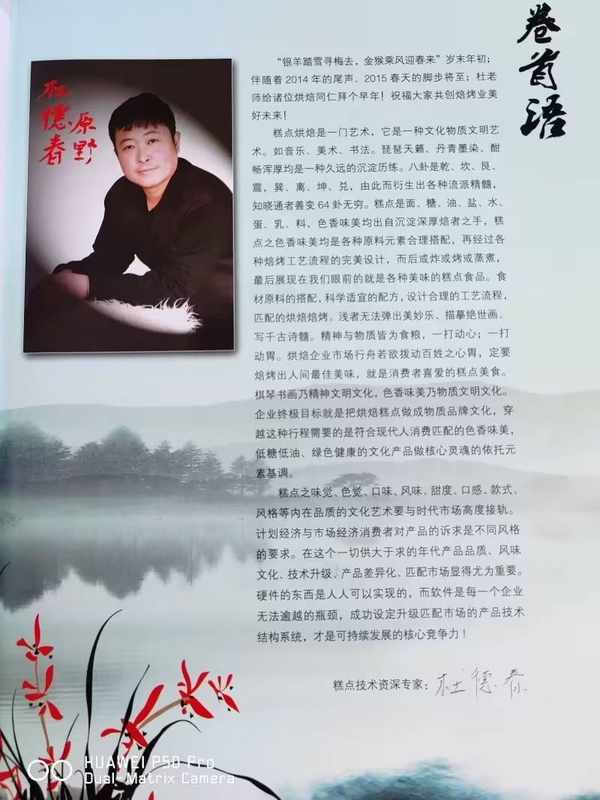 卷首语
杜德春
原野
“银羊踏雪寻梅去，金猴乘风迎春来”岁末年初；
伴随着2014年的尾声、2015春天的脚步将至；杜老
师给诸位烘焙同仁拜个早年！祝福大家共创焙烤业美
好未来！
糕点烘焙是一门艺术，它是一种文化物质文明艺
术。如音乐、美术、书法。琵琶天籁、丹青墨染、酣
畅浑厚均是一种久远的沉淀历练。八卦是乾、坎、艮、
震，巽、离、坤、兑，由此而衍生出各种流派精髓，
知晓通者善变64卦无穷。糕点是面、糖、油、盐、水、
蛋、乳、料，色香味美均出自沉淀深厚焙者之手，糕
点之色香味美是各种原料元素合理搭配，再经过各
种焙烤工艺流程的完美设计，而后或炸或烤或蒸煮，
最后展现在我们眼前的就是各种美味的糕点食品。食
材原料的搭配，科学适宜的配方，设计合理的工艺流程，
匹配的烘焙焙烤。浅者无法弹出美妙乐、描摹绝世画、
写千古诗髓。精神与物质皆为食粮，一打动心；一打
动胃。烘焙企业市场行舟若欲拨动百姓之心胃，定要
焙烤出人间最佳美味，就是消费者喜爱的糕点美食。
棋琴书画乃精神文明文化，色香味美乃物质文明文化。
企业终极目标就是把烘焙糕点做成物质品牌文化，穿
越这种行程需要的是符合现代人消费匹配的色香味美，
低糖低油、绿色健康的文化产品做核心灵魂的依托元
素基调。
糕点之味觉、色觉、口味、风味、甜度、口感、款式、
风格等内在品质的文化艺术要与时代市场高度接轨。
计划经济与市场经济消费者对产品的诉求是不同风格
的要求。在这个一切供大于求的年代产品品质、风味
文化、技术升级、产品差异化、匹配市场显得尤为重要。
硬件的东西是人人可以实现的，而软件是每一个企业
无法逾越的瓶颈，成功设定升级匹配市场的产品技术
结构系统，才是可持续发展的核心竞争力！
糕点技术资深专家：杜德春
HUAWEI P50 Pro
Dual-Matrix Camera